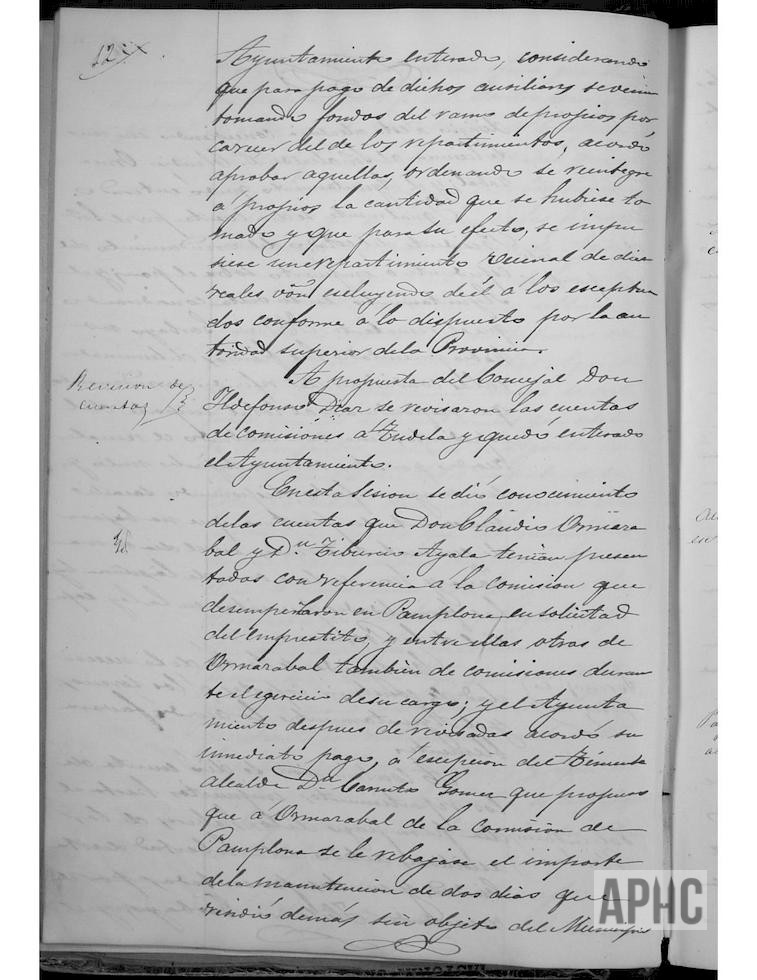 12
Ayuntamiento enterado, considerando
que para pago de dichos auxiliares se venian
tomando fondos del ramo de propios por
carecer del de los repartimientos, acordó
aprobar aquellas, ordenando se reintegre
á propios la cantidad que se hubiese to
mado y que para su efecto, se impu
siese un repartimiento vecinal de diez
reales von escluyendo de él á los esceptua
dos conforme á lo dispuesto por la au
toridad superior de la Provincia.
Revision de
cuentas
A propuesta del Concejal Don
Ildefonso Diaz se revisaron las cuentas
de comisiones á Tudela y quedó enterado
el Ayuntamiento.
Id.
En esta Sesion se dió conocimiento
de las cuentas que Don Claudio Ormara
bal y Dn Tiburcio Ayala tenian presen
tadas con referencia a la comision que
desempeñaron en Pamplona en solicitud
del Emprestito, y entre ellas otras de
Ormarabal tambien de comisiones duran
te el egercicio de su cargo; y el Ayunta
miento despues de revisadas acordó su
inmediato pago, á escepcion del Teniente
Alcalde Dn Canuto Gomez que propuso
que á Ormarabal de la comision de
Pamplona se le rebajase el importe
de la manutencion de dos dias que
rindió demás sin objeto del Municipio
APHC